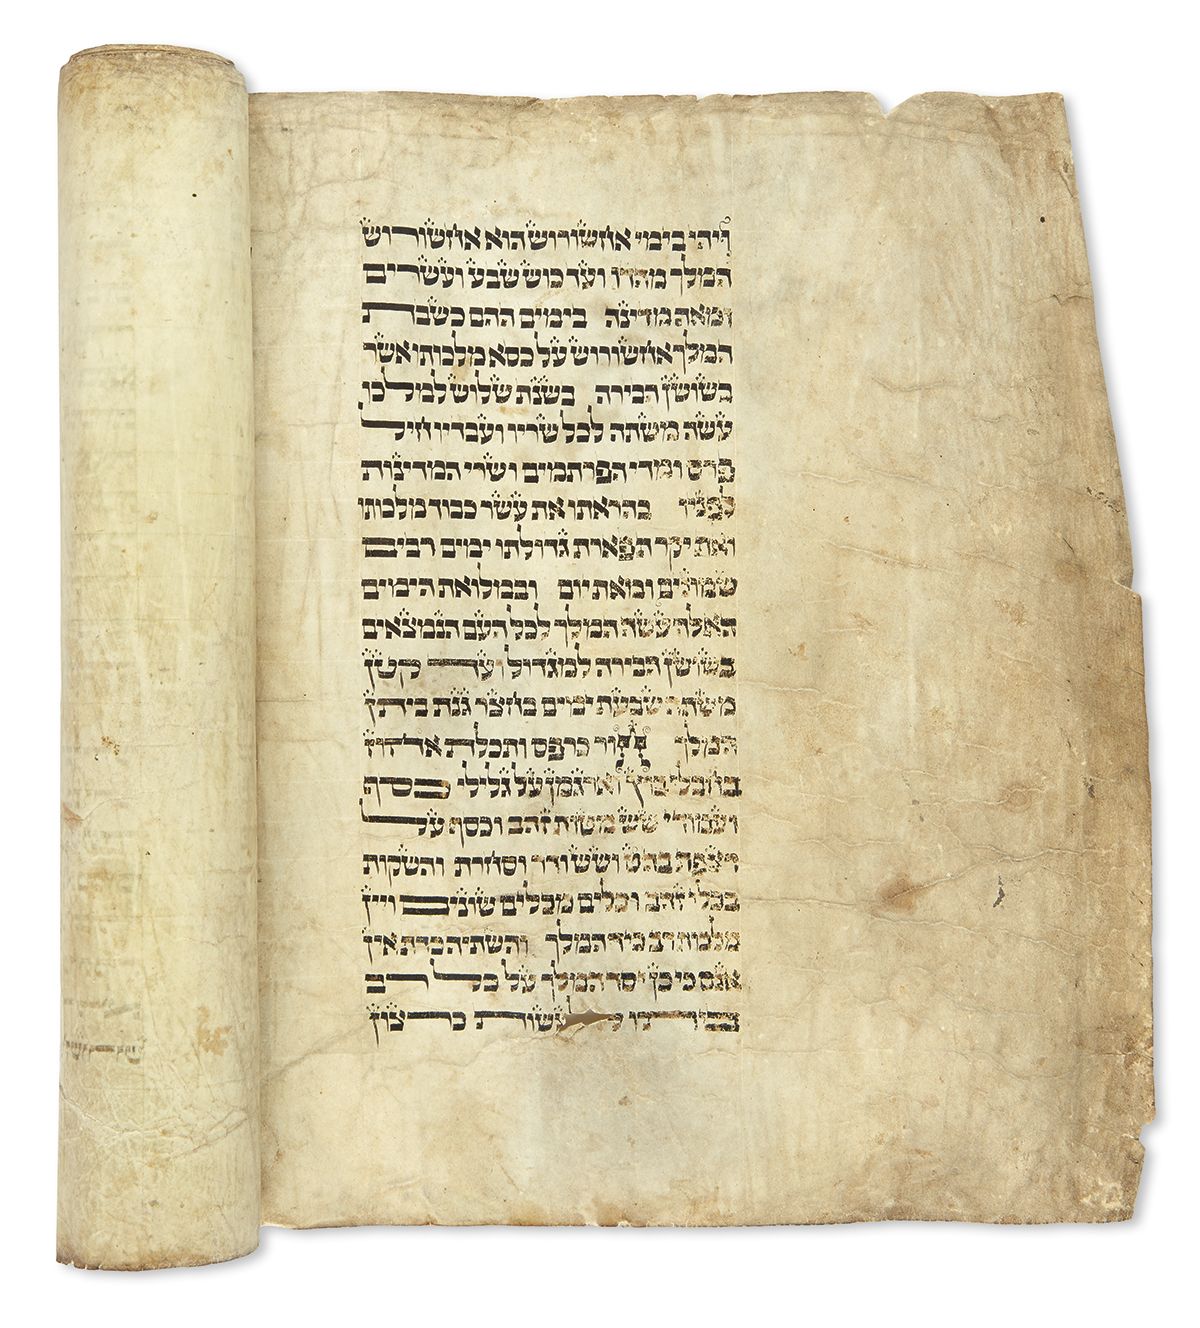 ויהי בימי אחשורוש הוא אחשורוש
המלך מהדו ועד כוש שבע ועשרים
ומאה מדינה בימים ההם כשבת
המלך אחשורוש על כסא מלכותו אשר
בשושן הבירה בשנת שלוש למלכו
עשה משתה לכל שריו ועבדיו חיל
פרס ומדי הפרתמים ושרי המדינות
לפניו בהראתו את עשר כבוד מלכותו
ואת יקר תפארת גדולתו ימים רבים
שמונים ומאת יום ובמלואת הימים
האלה עשה המלך לכל העם הנמצאים
בשושן הבירה למגדול ועד קטן
משתה שבעת ימים בחצר גנת ביתן
המלך חור כרפס ותכלת אחוז
בחבלי בוץ וארגמן על גלילי כסף
ועמודי שש מטות זהב וכסף על
רצפת בהט ושש ודר וסחרת והשקות
בכלי זהב וכלים מכלים שונים ויין
מלכות רב כיד המלך והשתיה כדת אין
אנס כי כן יסד המלך על כל רב
ביתו לעשות כרצון